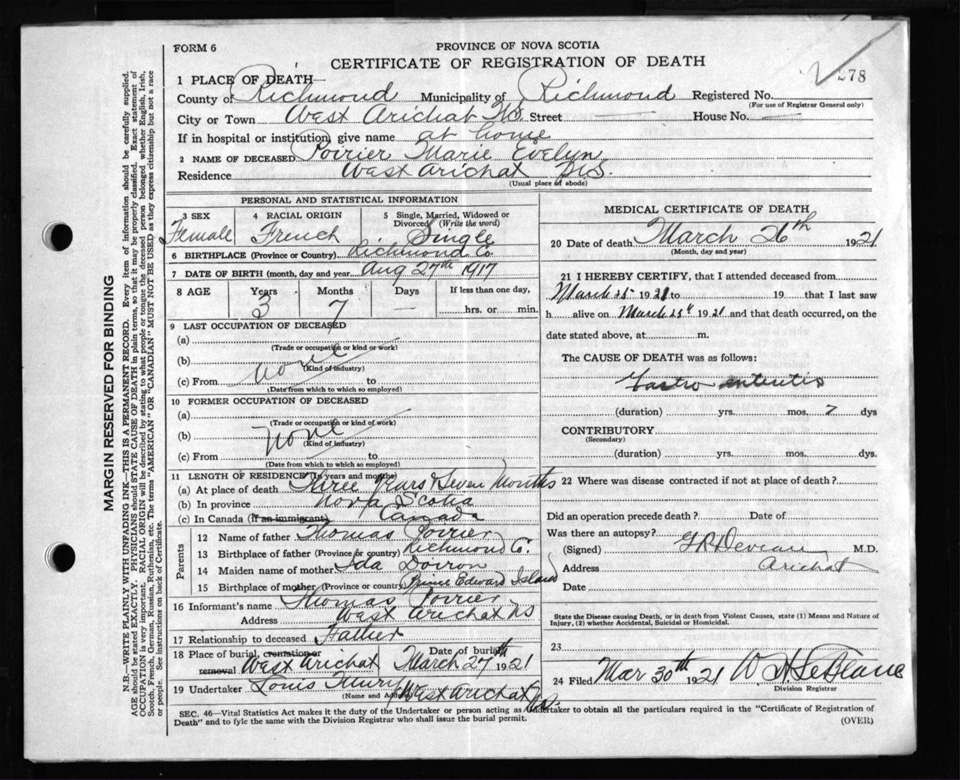 FORM 6
PROVINCE OF NOVA SCOTIA
CERTIFICATE OF REGISTRATION OF DEATH
278
1 PLACE OF DEATH
County of Richmond Municipality of Richmond Registered No.
(For use of Registrar General only)
City or Town West Arichat N.S. Street House No.
If in hospital or institution, give name at home
2 NAME OF DECEASED Poirier Marie Evelyn
Residence West Arichat N.S.
(Usual place of abode)
PERSONAL AND STATISTICAL INFORMATION
3 SEX Female
4 RACIAL ORIGIN French
5 Single, Married, Widowed or Divorced (Write the word) Single
6 BIRTHPLACE (Province or Country) Richmond Co.
7 DATE OF BIRTH (month, day and year) Aug 27th 1917
8 AGE Years Months Days If less than one day,
3 7 — hrs. or min.
9 LAST OCCUPATION OF DECEASED
(a)
(Trade or occupation or kind of work)
(b) none
(Kind of industry)
(c) From to
(Date from which to which so employed)
10 FORMER OCCUPATION OF DECEASED
(a)
(Trade or occupation or kind of work)
(b) none
(Kind of industry)
(c) From to
(Date from which to which so employed)
11 LENGTH OF RESIDENCE (In years and months)
(a) At place of death Three Years Seven Months
(b) In province Nova Scotia
(c) In Canada (If an immigrant) Canada
Parents
12 Name of father Thomas Poirier
13 Birthplace of father (Province or country) Richmond C.
14 Maiden name of mother Ida Doiron
15 Birthplace of mother (Province or country) Prince Edward Island
16 Informant's name Thomas Poirier
Address West Arichat NS
17 Relationship to deceased Father
18 Place of burial, cremation or removal West Arichat Date of burial March 27th 1921
19 Undertaker Louis
(Name and Address) West Arichat N.S.
MEDICAL CERTIFICATE OF DEATH
20 Date of death March 26th 1921
(Month, day and year)
21 I HEREBY CERTIFY, that I attended deceased from
March 25 1921 to 19 that I last saw
h alive on March 25th 1921 and that death occurred, on
date stated above, at m.
The CAUSE OF DEATH was as follows:
Gastro enteritis
(duration) yrs. mos. 7 dys
CONTRIBUTORY
(Secondary)
(duration) yrs. mos. dys.
22 Where was disease contracted if not at place of death?
Did an operation precede death? Date of
Was there an autopsy?
(Signed) M.D.
Address Arichat
Date
State the Disease causing Death, or in death from Violent Causes, state (1) Means and Nature of
Injury, (2) whether Accidental, Suicidal or Homicidal.
23
24 Filed Mar 30th 1921 W. A. LeBlanc
Division Registrar
SEC. 46—Vital Statistics Act makes it the duty of the Undertaker or person acting as Undertaker to obtain all the particulars required in the "Certificate of Registration of
Death" and to fyle the same with the Division Registrar who shall issue the burial permit.
(OVER)
MARGIN RESERVED FOR BINDING
N.B.—WRITE PLAINLY WITH UNFADING INK—THIS IS A PERMANENT RECORD. Every item of information should be carefully supplied.
AGE should be stated EXACTLY. PHYSICIANS should STATE CAUSE OF DEATH in plain terms, so that it may be properly classified. Exact statement of
OCCUPATION is very important. RACIAL ORIGIN will be described by stating to what people or tongue the deceased person belonged whether English, Irish,
Scotch, French, German, Russian, Ruthenian, etc. The terms "AMERICAN" OR "CANADIAN" MUST NOT BE USED as they express citizenship but not a race
of people. See instructions on back of Certificate.